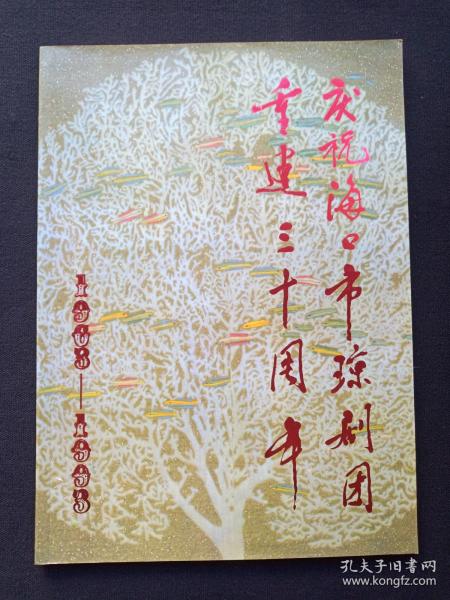 庆祝海口市琼剧团
重建三十周年
1963—1993
孔夫子旧书网
www.kongfz.com